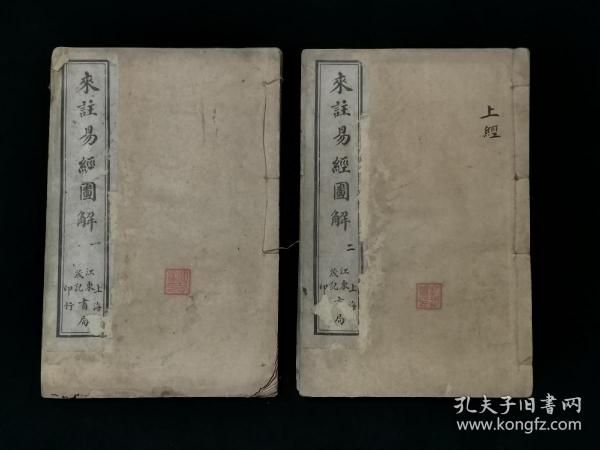 來註易經圖解 一
上海
江東書局
茂記
印行
來註易經圖解 二
上海
江東書局
茂記
印
上經
孔夫子旧書网
www.kongfz.com